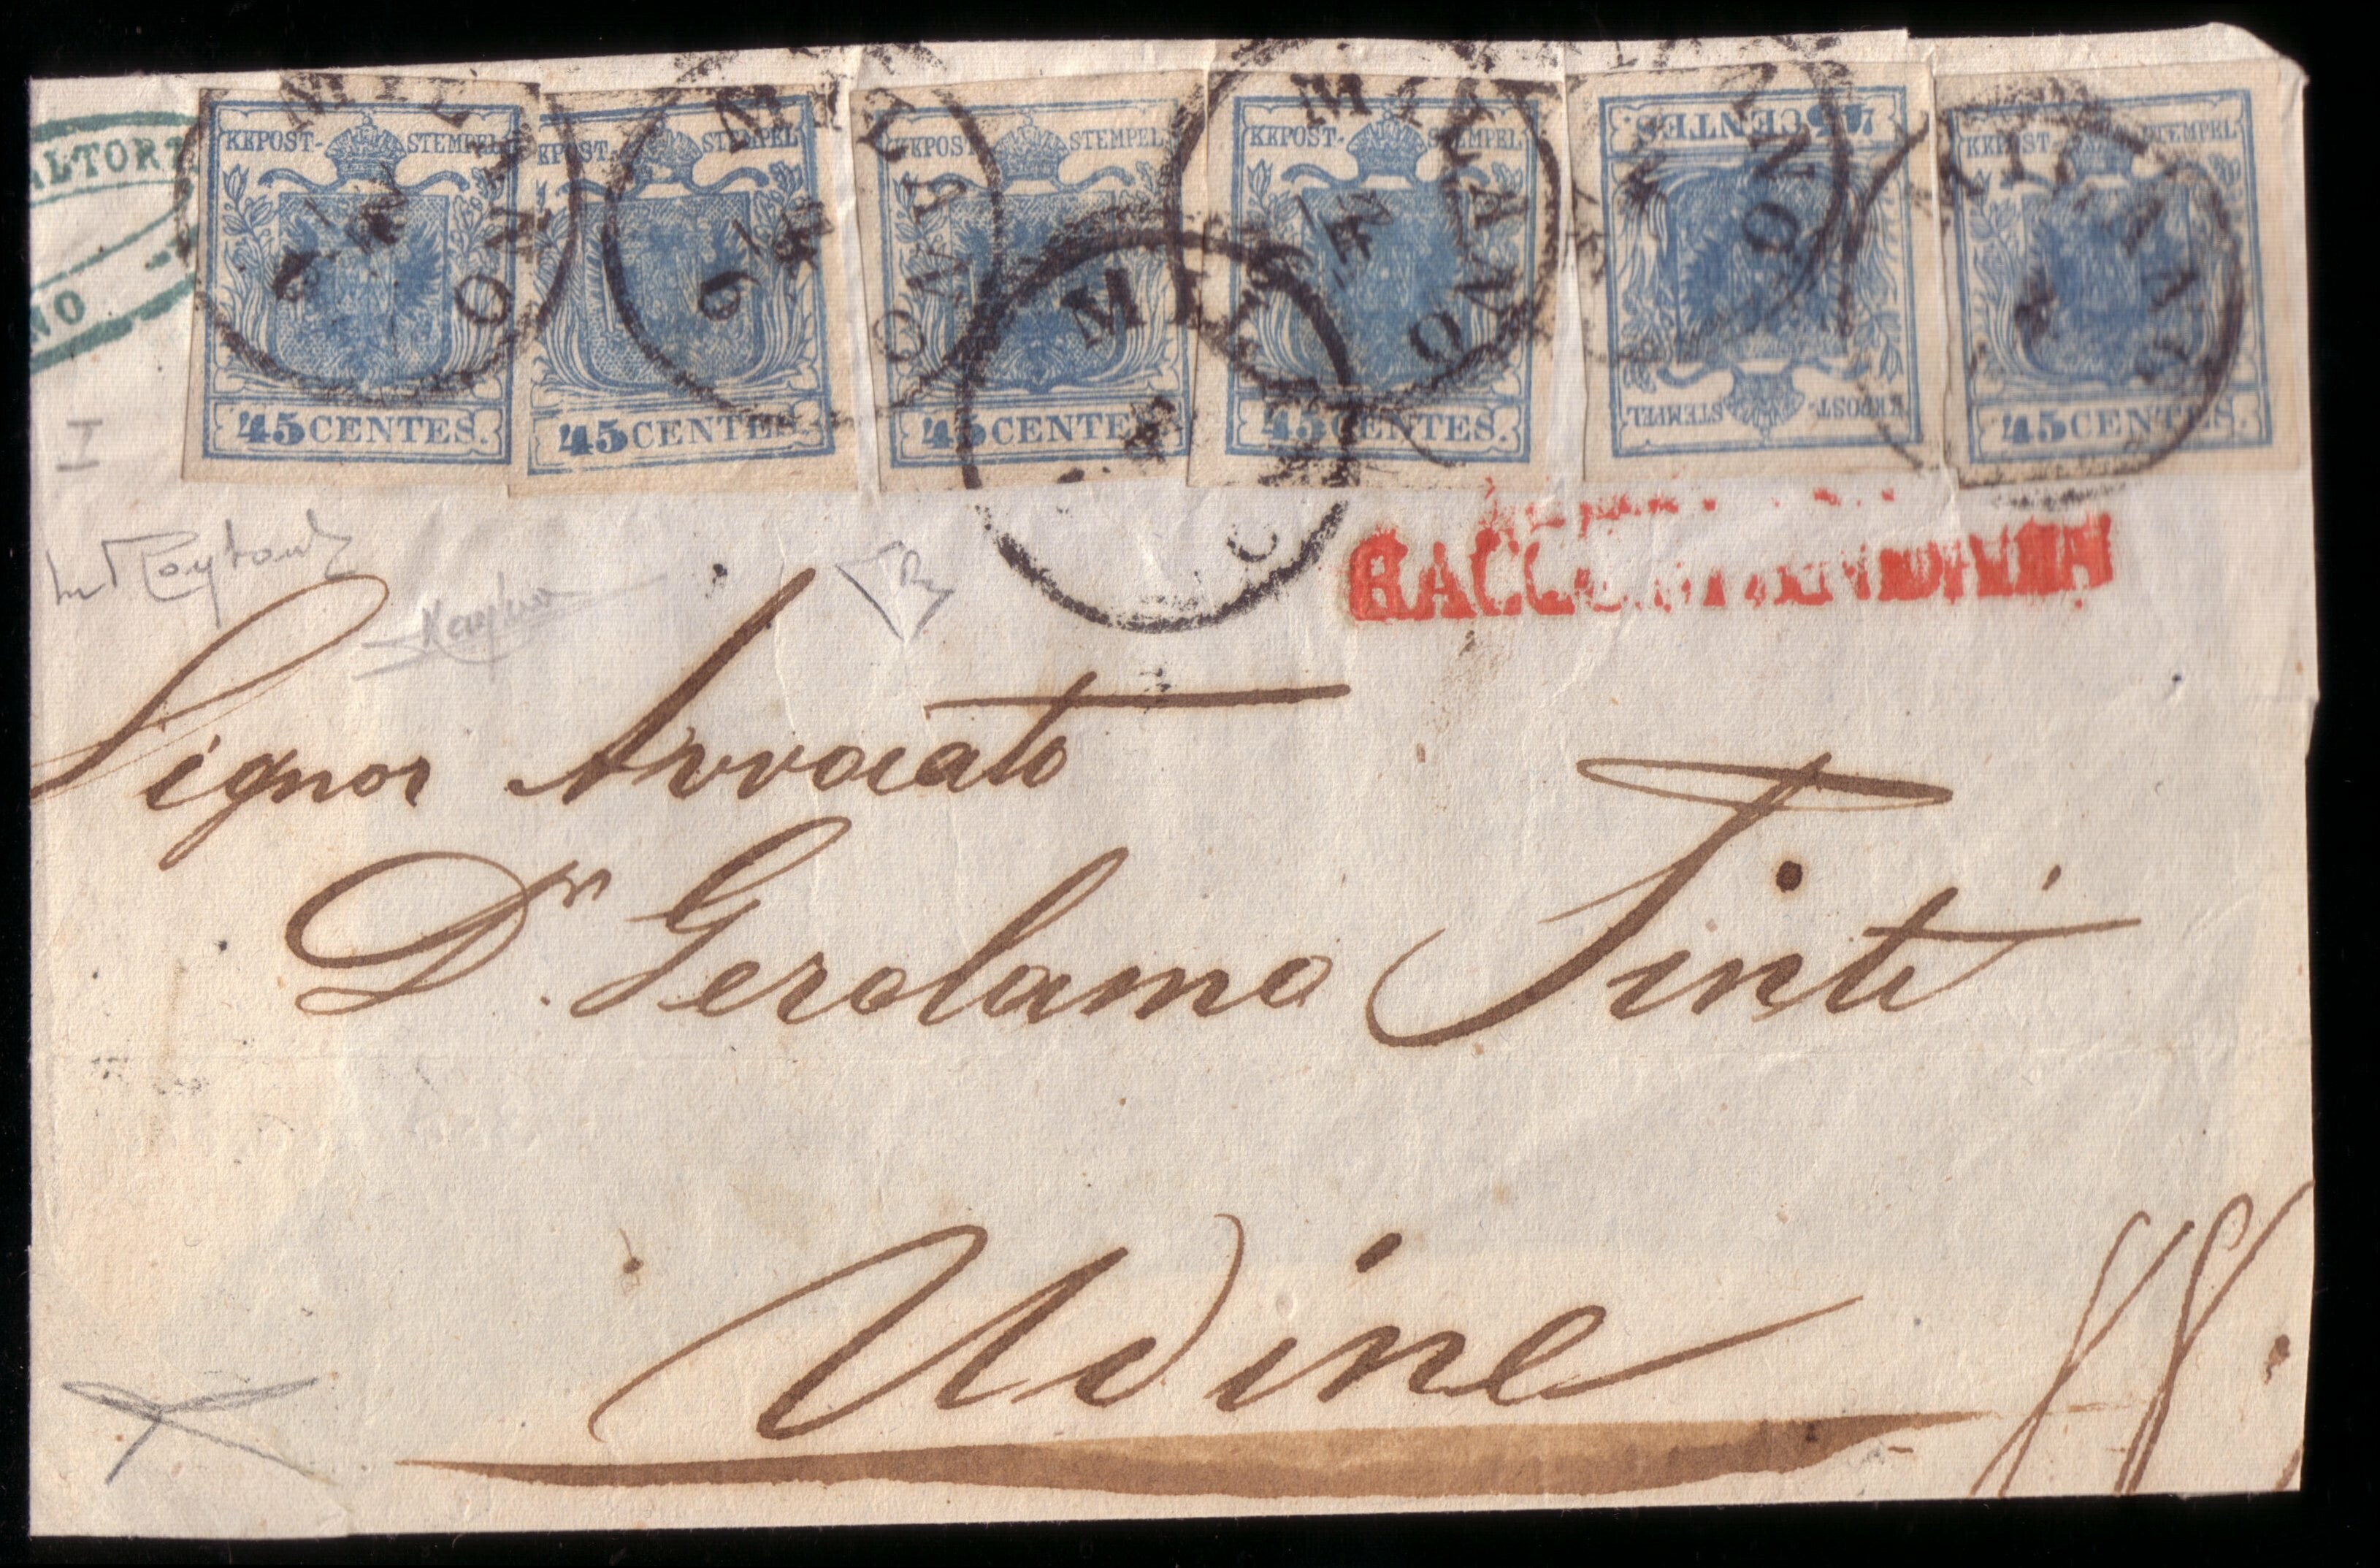 KKPOST-STEMPEL
45 CENTES.
KKPOST-STEMPEL
45 CENTES.
KKPOST-STEMPEL
45 CENTES.
KKPOST-STEMPEL
45 CENTES.
45 CENTES.
KKPOST-STEMPEL
KKPOST-STEMPEL
45 CENTES.
MILANO
MILANO
MILANO
MILANO
RACCOMANDATA
I
Signor Avvocato
Dr. Gerolamo Tinti
Udine